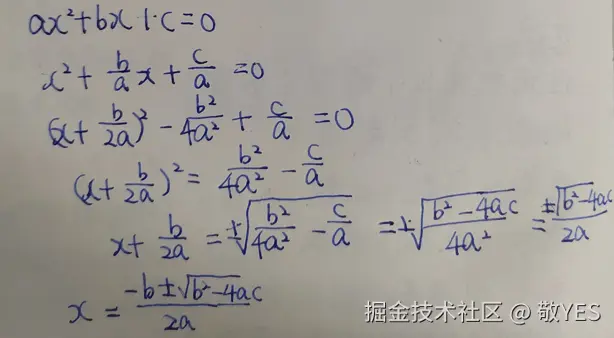 ax²+bx+c=0
x²+\frac{b}{a}x+\frac{c}{a}=0
(x+\frac{b}{2a})²-\frac{b²}{4a²}+\frac{c}{a}=0
(x+\frac{b}{2a})²=\frac{b²}{4a²}-\frac{c}{a}
x+\frac{b}{2a}=±\sqrt{\frac{b²}{4a²}-\frac{c}{a}}=±\sqrt{\frac{b²-4ac}{4a²}}=\frac{±\sqrt{b²-4ac}}{2a}
x=\frac{-b±\sqrt{b²-4ac}}{2a}
掘金技术社区 @ 敬YES